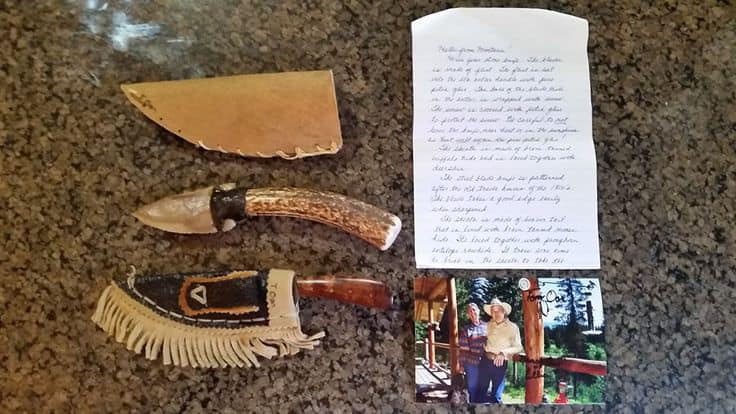 Hello from Montana!
Here is your stone knife. The blade
is made of flint. The flint is set
into the elk antler handle with pine
pitch glue. The base of the blade
in the antler is wrapped with sinew.
The sinew is covered with pitch glue
to protect the sinew. Be careful to not
leave the knife near heat or in the
as heat will the pine pitch glue!
The sheath is made of brain tanned
buffalo hide and is laced together with
deerskin.
The steel blade knife is patterned
after the old trade knives of the 1800's.
The blade takes a good edge easily
when sharpened.
The sheath is made of beaver tail
that is lined with brain tanned moose
hide. It's laced together with pronghorn
antelope rawhide. It takes some time
to break in the sheath to take the
TOM
Tom